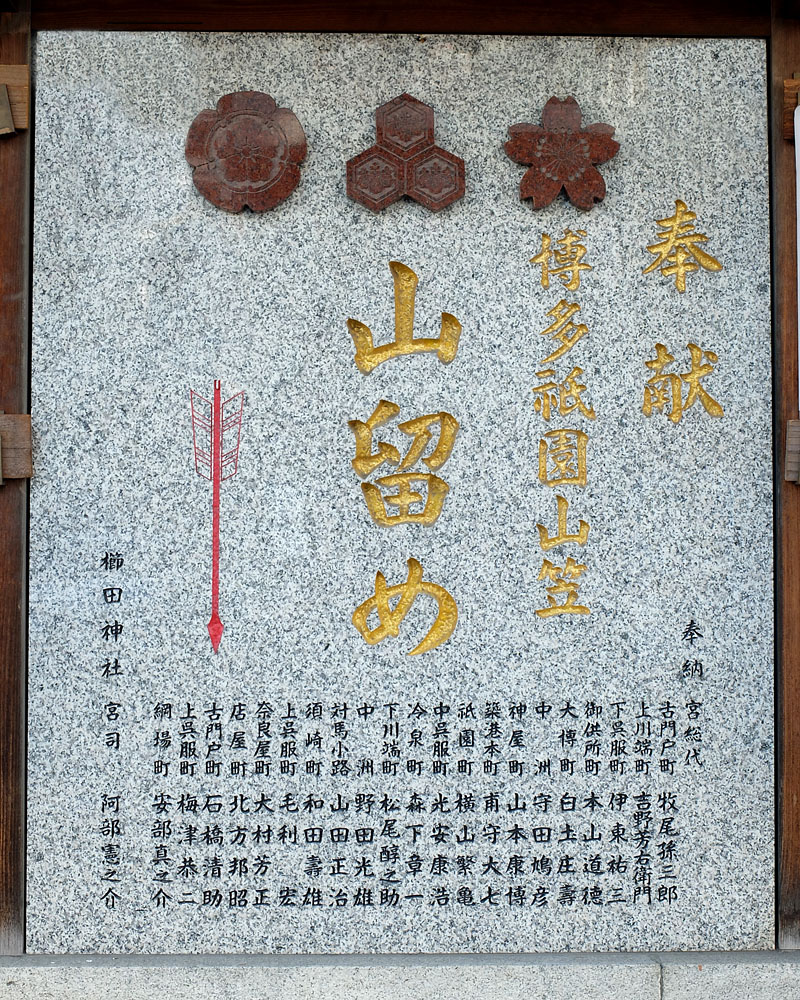 奉献
博多祇園山笠
山留め
奉納 宮総代
古門戸町 牧尾孫三郎
上川端町 吉野芳右衛門
下呉服町 伊東祐三
御供所町 本山道德
大博町 白土庄壽
中洲 守田鳩彦
神屋町 山本康博
築港本町 甫守大七
祇園町 横山繁亀
中呉服町 光安康浩
冷泉町 森下章一
下川端町 松尾醇之助
中洲 野田光雄
対馬小路 山田正治
須崎町 和田壽雄
上呉服町 毛利宏
奈良屋町 大村芳正
店屋町 北方邦昭
古門戸町 石橋清助
上呉服町 梅津恭二
網場町 安部真之介
櫛田神社 宮司 阿部憲之介